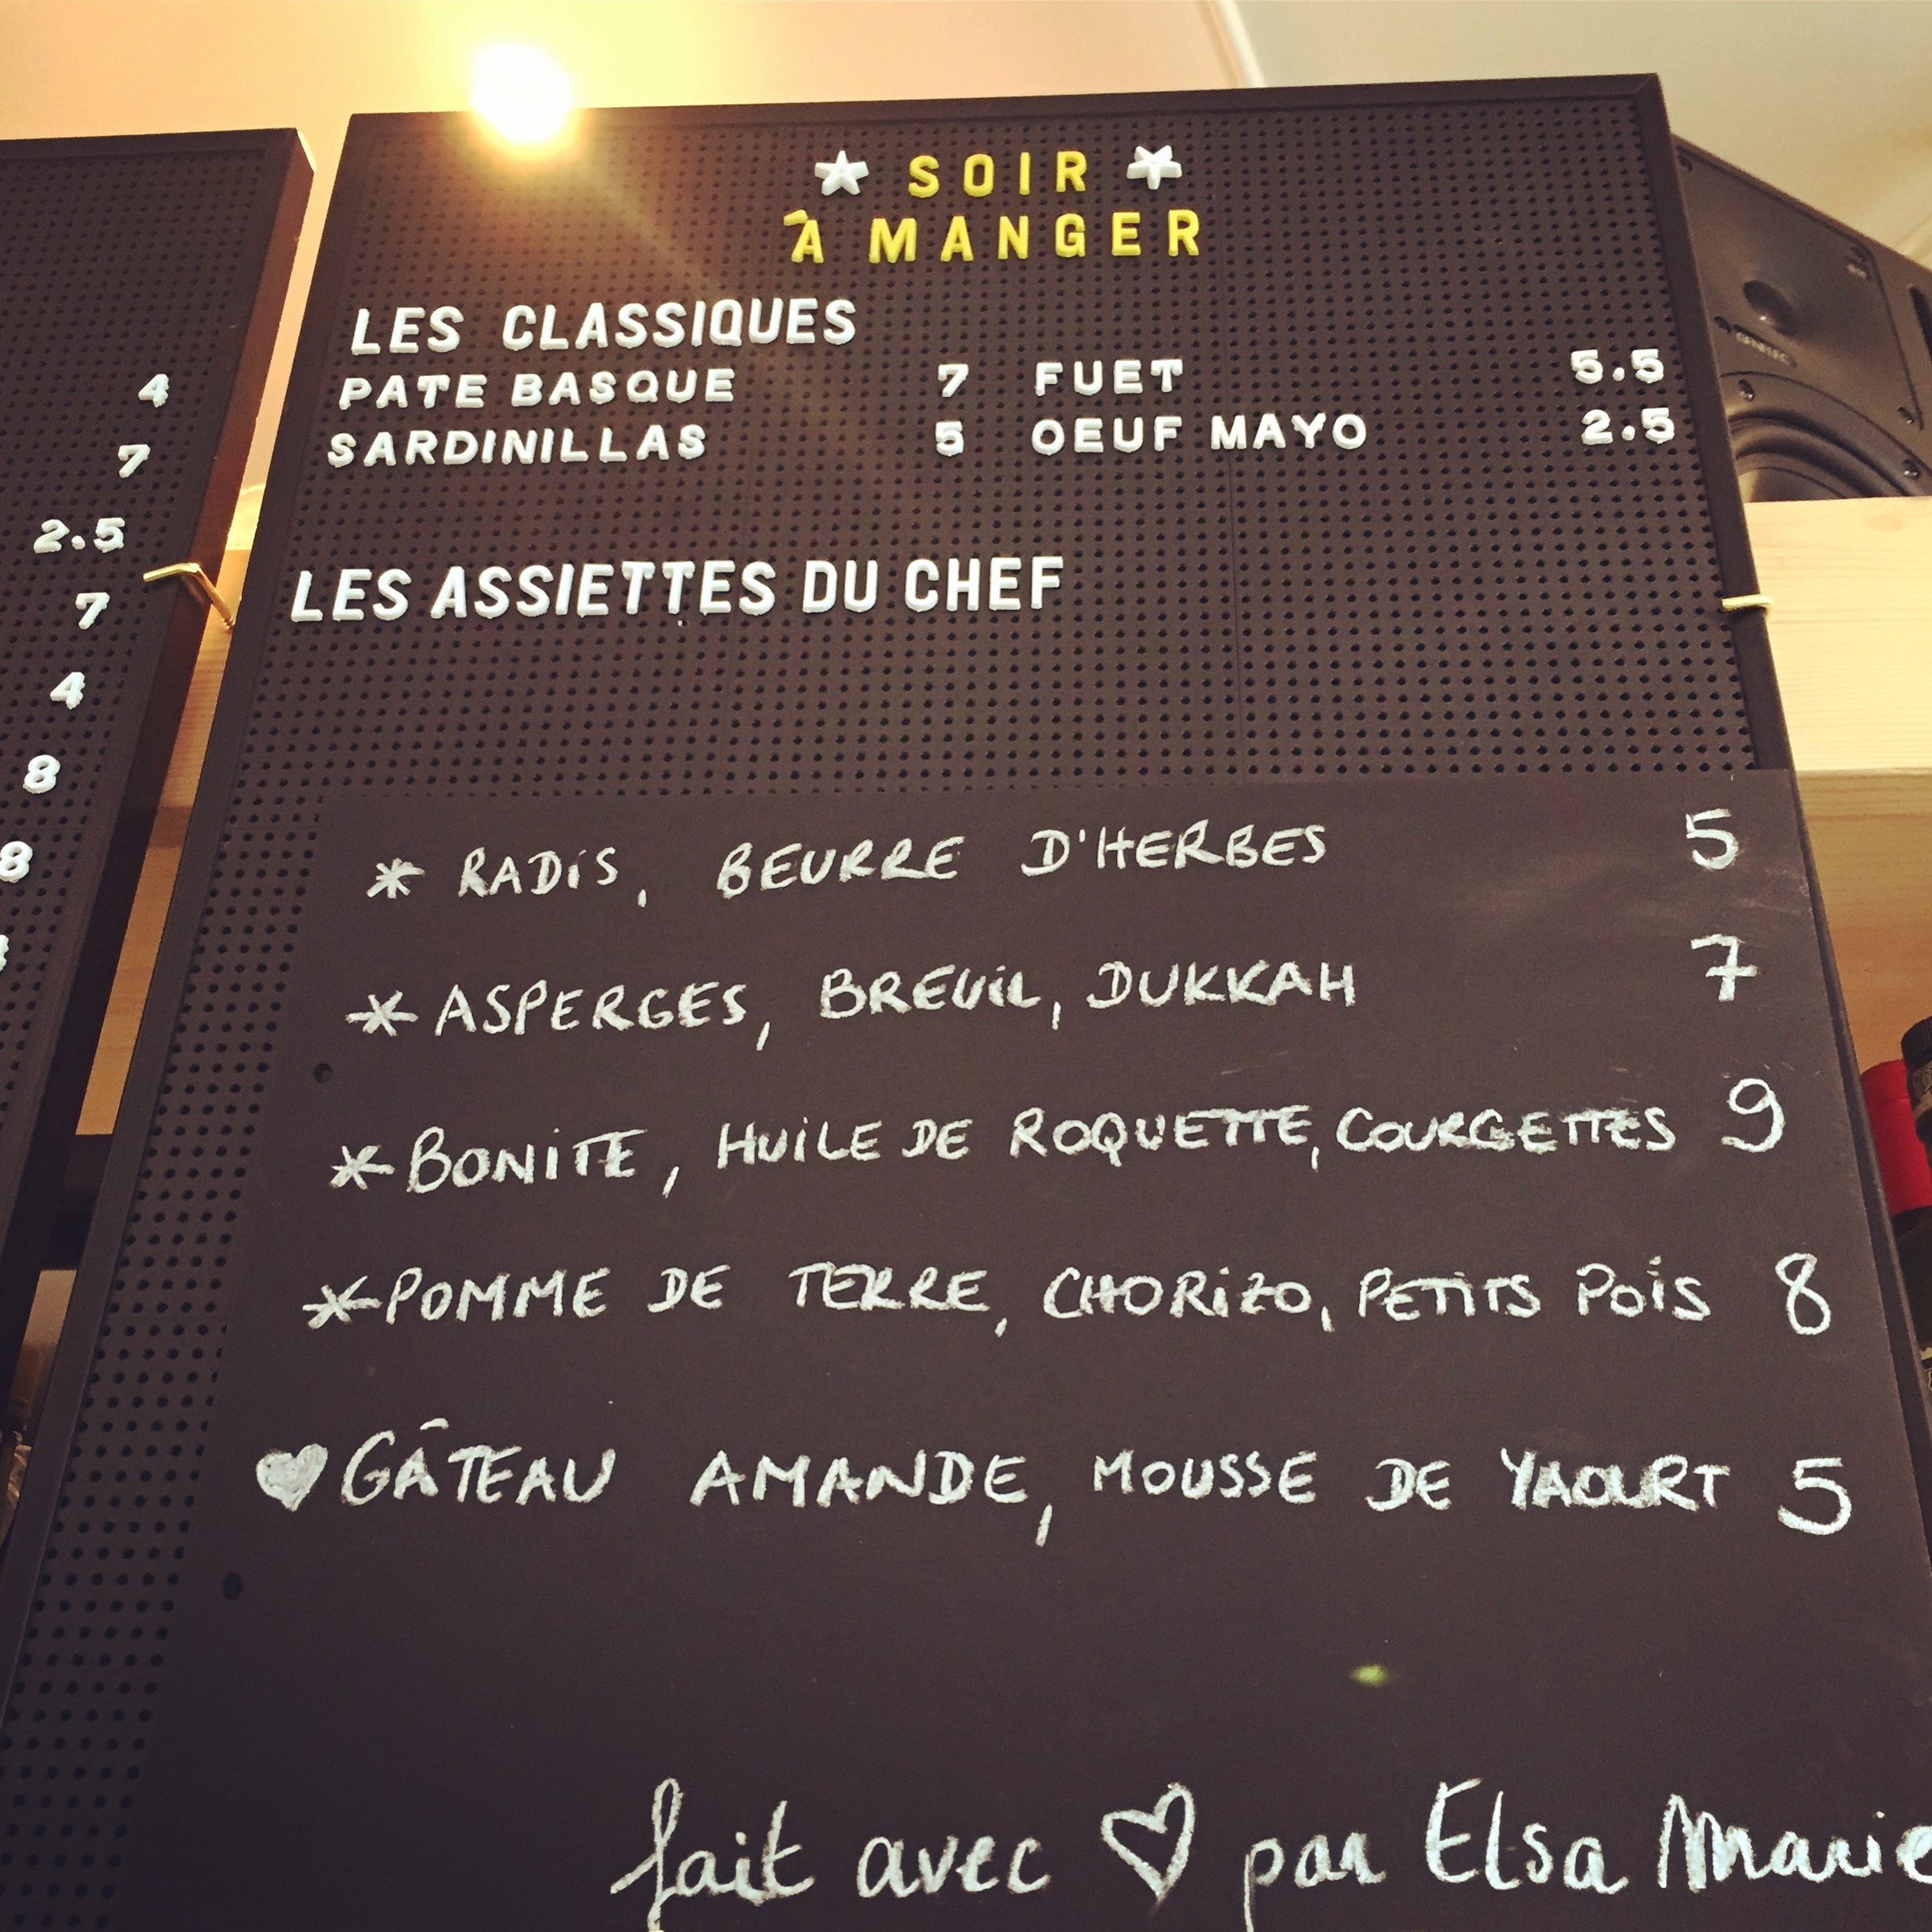 SOIR
À MANGER
LES CLASSIQUES
PATE BASQUE 7 FUET 5.5
SARDINILLAS 5 OEUF MAYO 2.5
LES ASSIETTES DU CHEF
* RADIS, BEURRE D'HERBES 5
* ASPERGES, BREUIL, DUKKAH 7
* BONITE, HUILE DE ROQUETTE, COURGETTES 9
* POMME DE TERRE, CHORIZO, PETITS POIS 8
♥ GÂTEAU AMANDE, MOUSSE DE YAOURT 5
fait avec ♡ par Elsa Marie
4
7
2.5
7
4
8
8